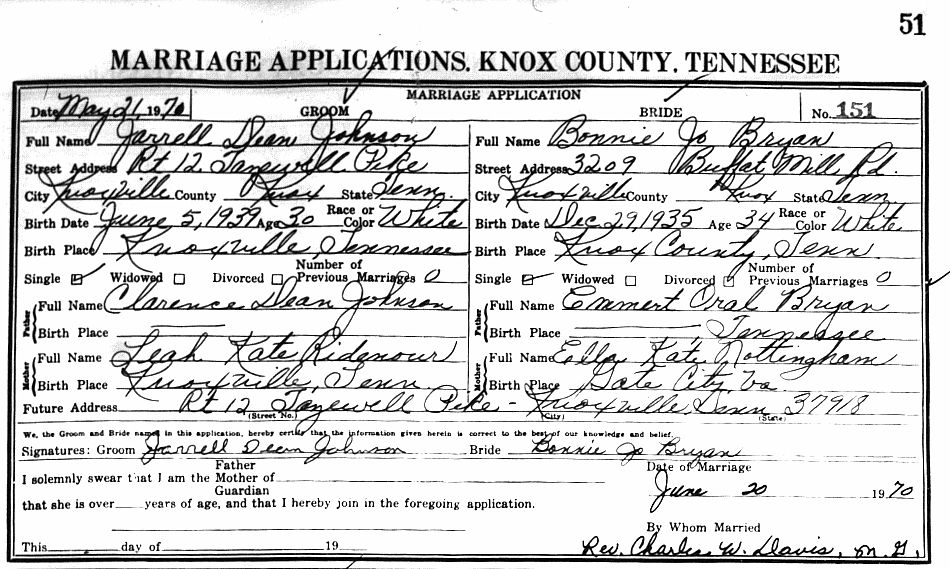 51
MARRIAGE APPLICATIONS, KNOX COUNTY, TENNESSEE
MARRIAGE APPLICATION
Date May 21, 1970 GROOM BRIDE No. 151
Full Name Jarrell Dean Johnson Full Name Bonnie Jo Bryan
Street Address Rt 12 Tazewell Pike Street Address 3209 Buffat Mill Rd.
City Knoxville County Knox State Tenn. City Knoxville County Knox State Tenn
Birth Date June 5, 1939 Age 30 Race or Color White Birth Date Dec 29, 1935 Age 34 Race or Color White
Birth Place Knoxville, Tennessee Birth Place Knox County, Tenn
Single ☑ Widowed ☐ Divorced ☐ Number of Previous Marriages 0 Single ☑ Widowed ☐ Divorced ☐ Number of Previous Marriages 0
Father Full Name Clarence Dean Johnson Father Full Name Emmert Oral Bryan
Birth Place Birth Place , Tennessee
Mother Full Name Leah Kate Ridenour Mother Full Name Ella Kate Nottingham
Birth Place Knoxville, Tenn. Birth Place Gate City Va
Future Address Rt 12 Tazewell Pike - Knoxville Tenn 37918
(Street No.) (City) (State)
We, the Groom and Bride named in this application, hereby certify that the information given herein is correct to the best of our knowledge and belief.
Signatures: Groom Jarrell Dean Johnson Bride Bonnie Jo Bryan
Father Date of Marriage
I solemnly swear that I am the Mother of
Guardian June 20 1970
that she is over years of age, and that I hereby join in the foregoing application.
By Whom Married
This day of 19 Rev. Charles W. Davis, M. G.